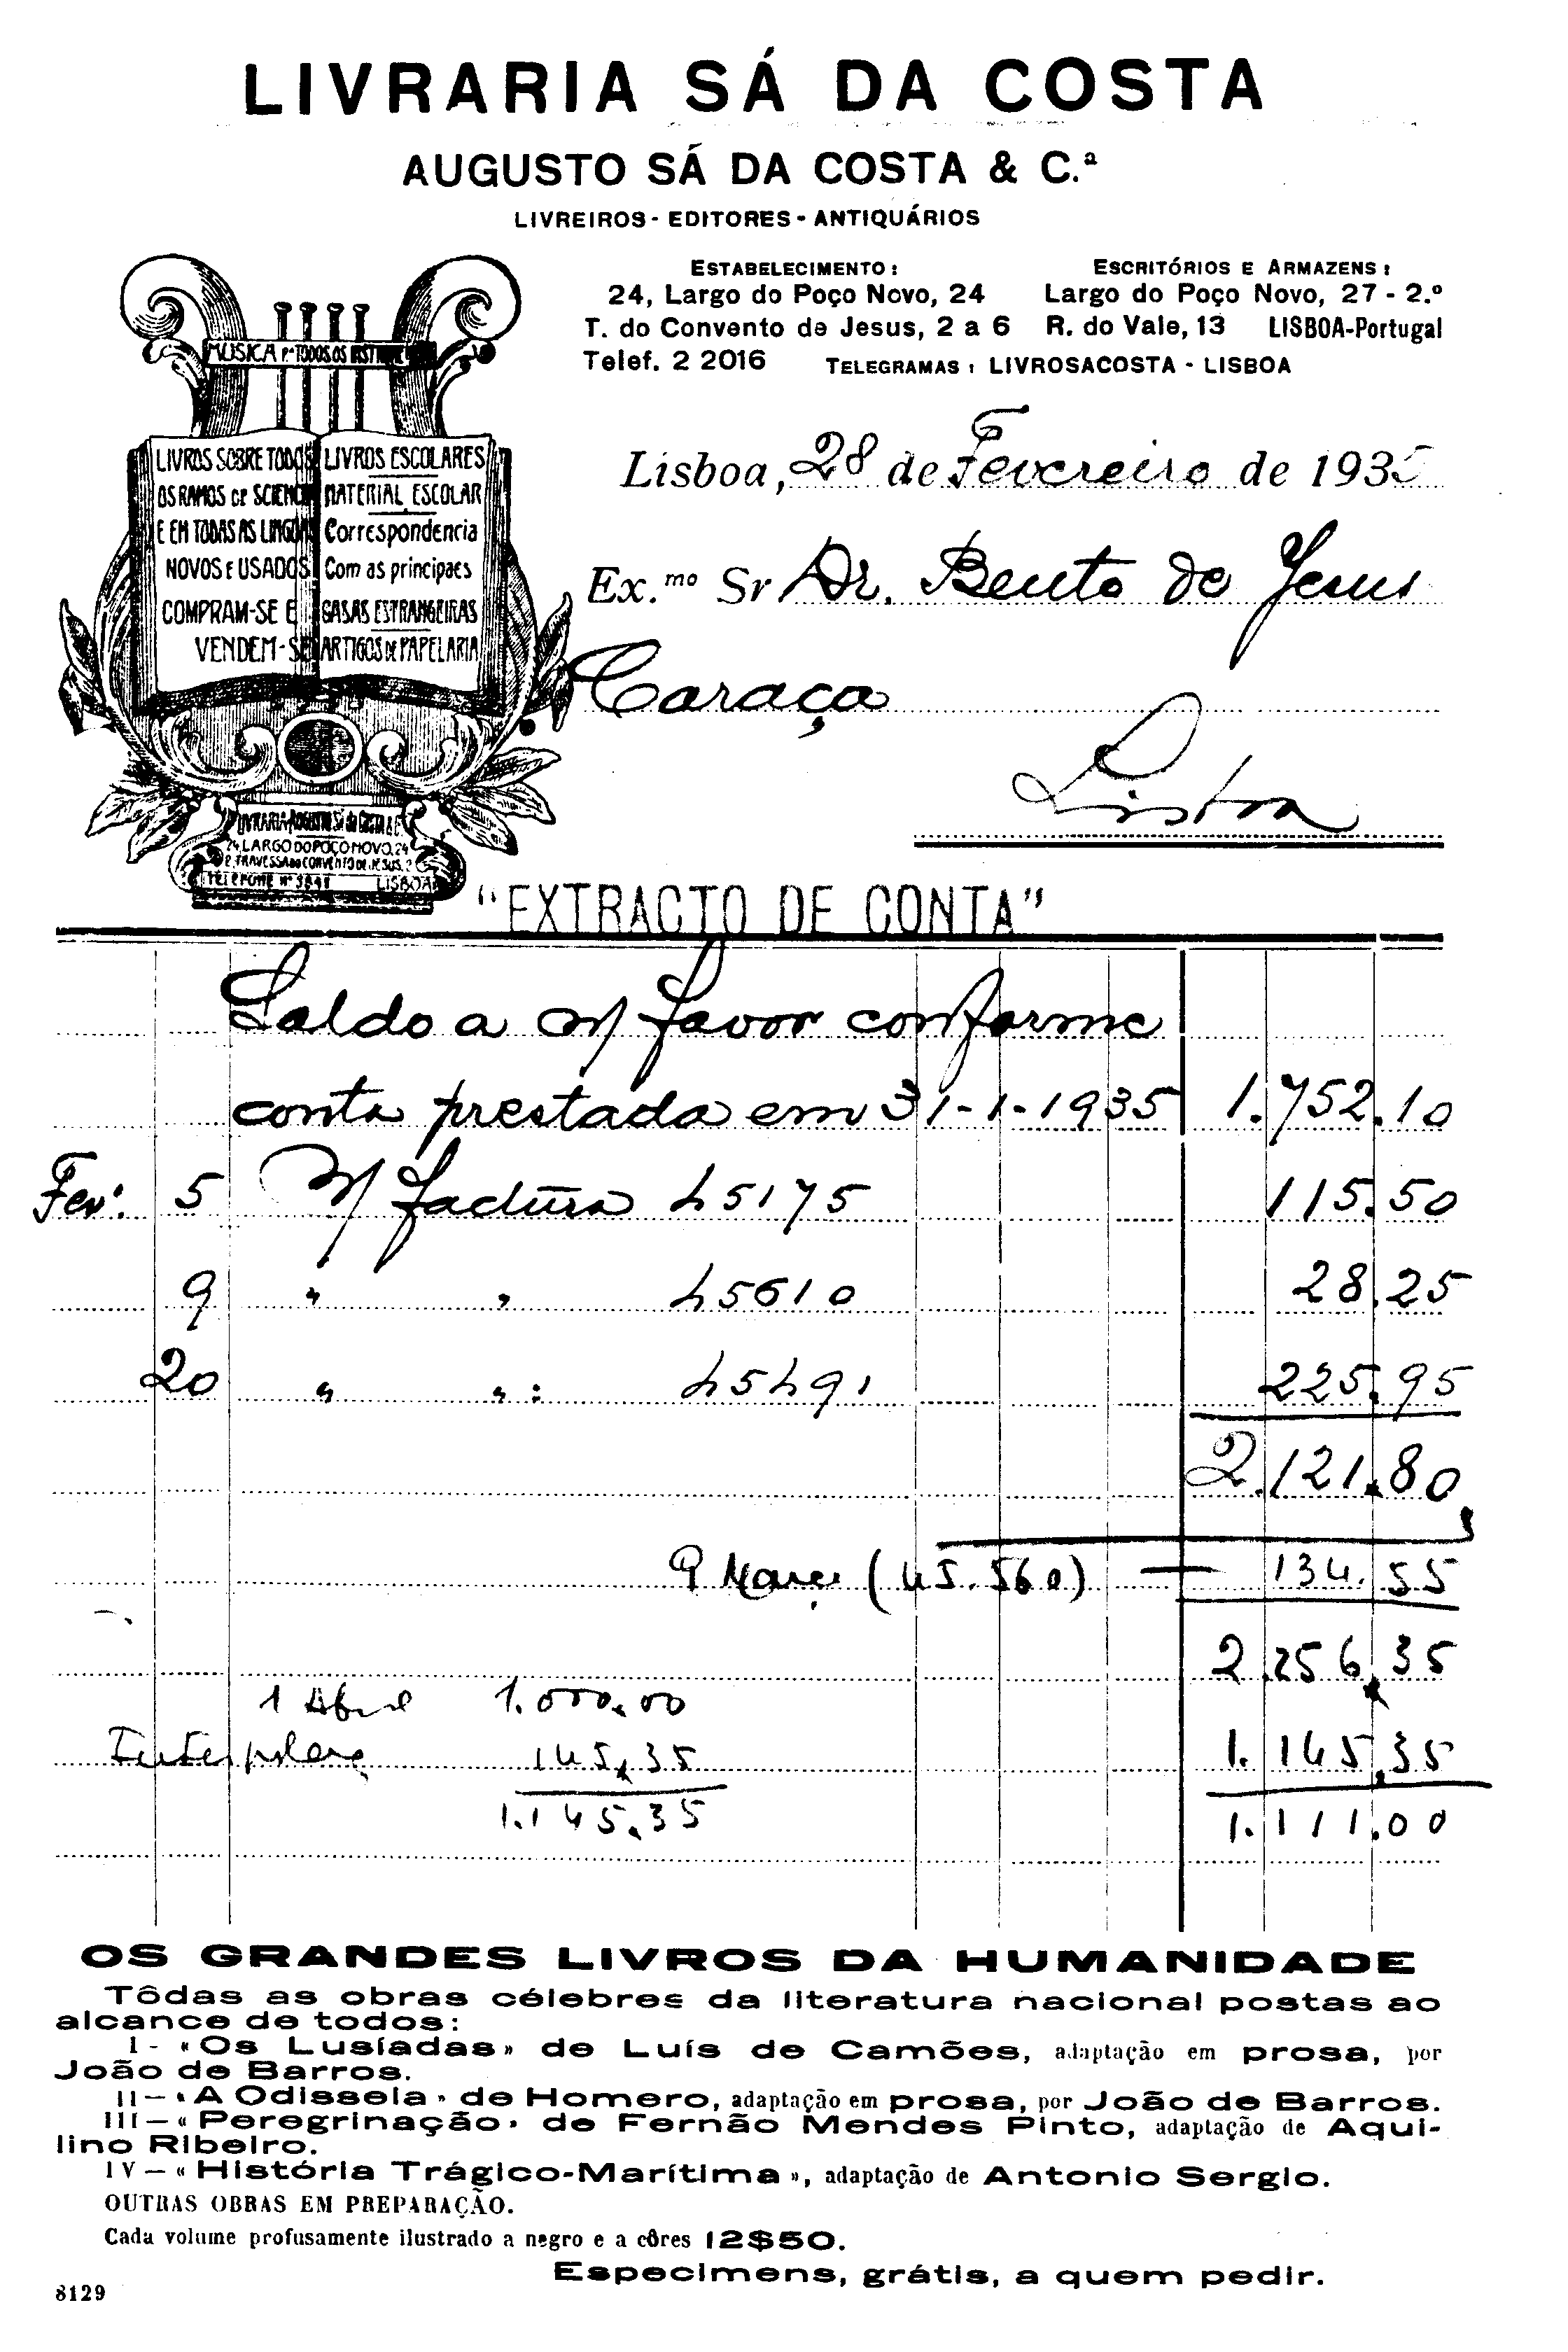 LIVRARIA SÁ DA COSTA
AUGUSTO SÁ DA COSTA & C.ª
LIVREIROS - EDITORES - ANTIQUÁRIOS
ESTABELECIMENTO:
24, Largo do Poço Novo, 24
T. do Convento de Jesus, 2 a 6
Telef. 2 2016
ESCRITÓRIOS E ARMAZENS:
Largo do Poço Novo, 27 - 2.º
R. do Vale, 13 LISBOA-Portugal
TELEGRAMAS: LIVROSACOSTA - LISBOA
MUSICA Pª TODOS OS
LIVROS SOBRE TODOS
OS RAMOS DE SCIENCIA
E EM TODAS AS LINGUAS
NOVOS E USADOS
COMPRAM-SE E
VENDEM-SE
LIVROS ESCOLARES
MATERIAL ESCOLAR
Correspondencia
Com as principaes
CASAS ESTRANGEIRAS
ARTIGOS DE PAPELARIA
LIVRARIA AUGUSTO Sá da COSTA
24, LARGO DO POÇO NOVO, 24
TRAVESSA DO CONVENTO DE JESUS, 2
TELEPHONE Nº LISBOA
Lisboa, 28 de Fevereiro de 1935
Ex.mo Sr Dr. Bento de Jesus
Caraça
Lisboa
"EXTRACTO DE CONTA"
Saldo a n/ favor conforme
conta prestada em 31-1-1935 1.752.10
Fevº. 5 N/ factura 45175 115.50
9 " " 45610 28.25
20 " " : 45491 225.95
2.121.80
9 Março (45.560) — 134.55
2.256.35
1 Abril 1.000.00
145.35 1.145.35
1.145.35 1.111.00
OS GRANDES LIVROS DA HUMANIDADE
Tôdas as obras célebres da literatura nacional postas ao
alcance de todos:
I - «Os Lusíadas» de Luís de Camões, adaptação em prosa, por
João de Barros.
II — «A Odisseia» de Homero, adaptação em prosa, por João de Barros.
III — «Peregrinação» de Fernão Mendes Pinto, adaptação de Aqui-
lino Ribeiro.
IV — «História Trágico-Marítima», adaptação de Antonio Sergio.
OUTRAS OBRAS EM PREPARAÇÃO.
Cada volume profusamente ilustrado a negro e a côres 12$50.
Especimens, grátis, a quem pedir.
8129